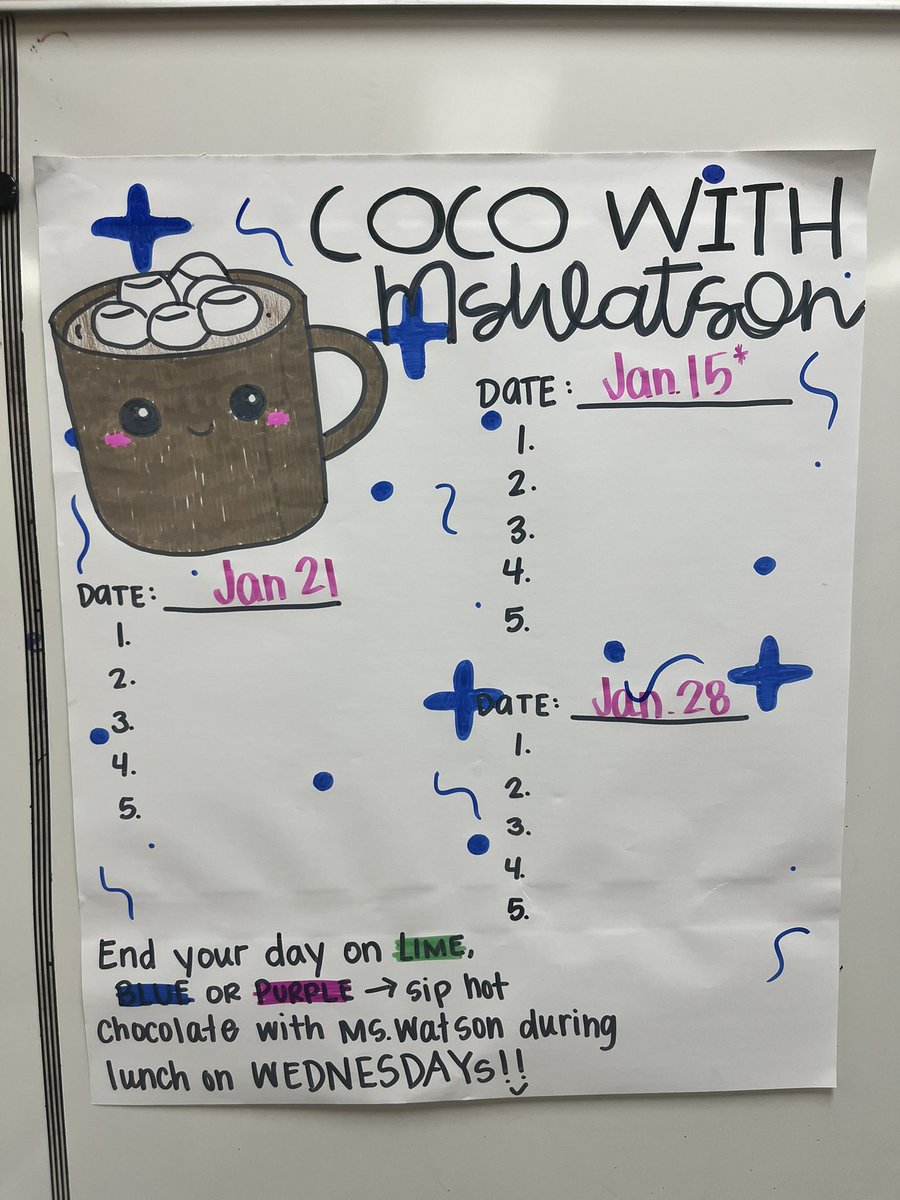 COCO WITH
MsWatson
DATE: Jan. 15*
1.
2.
3.
4.
5.
DATE: Jan 21
1.
2.
3.
4.
5.
DATE: Jan. 28
1.
2.
3.
4.
5.
End your day on LIME,
BLUE OR PURPLE → sip hot
chocolate with Ms. Watson during
lunch on WEDNESDAYs!!